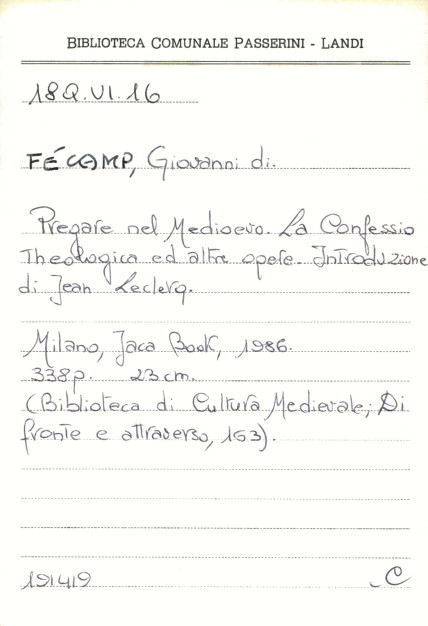 BIBLIOTECA COMUNALE PASSERINI - LANDI
18Q.VI.16
FÉCAMP, Giovanni di.
Pregare nel Medioevo. La Confessio
Theologica ed altre opere. Introduzione
di Jean Leclerq.
Milano, Jaca Book, 1986.
338p. 23 cm.
(Biblioteca di Cultura Medievale; Di
fronte e attraverso, 163).
191419 C